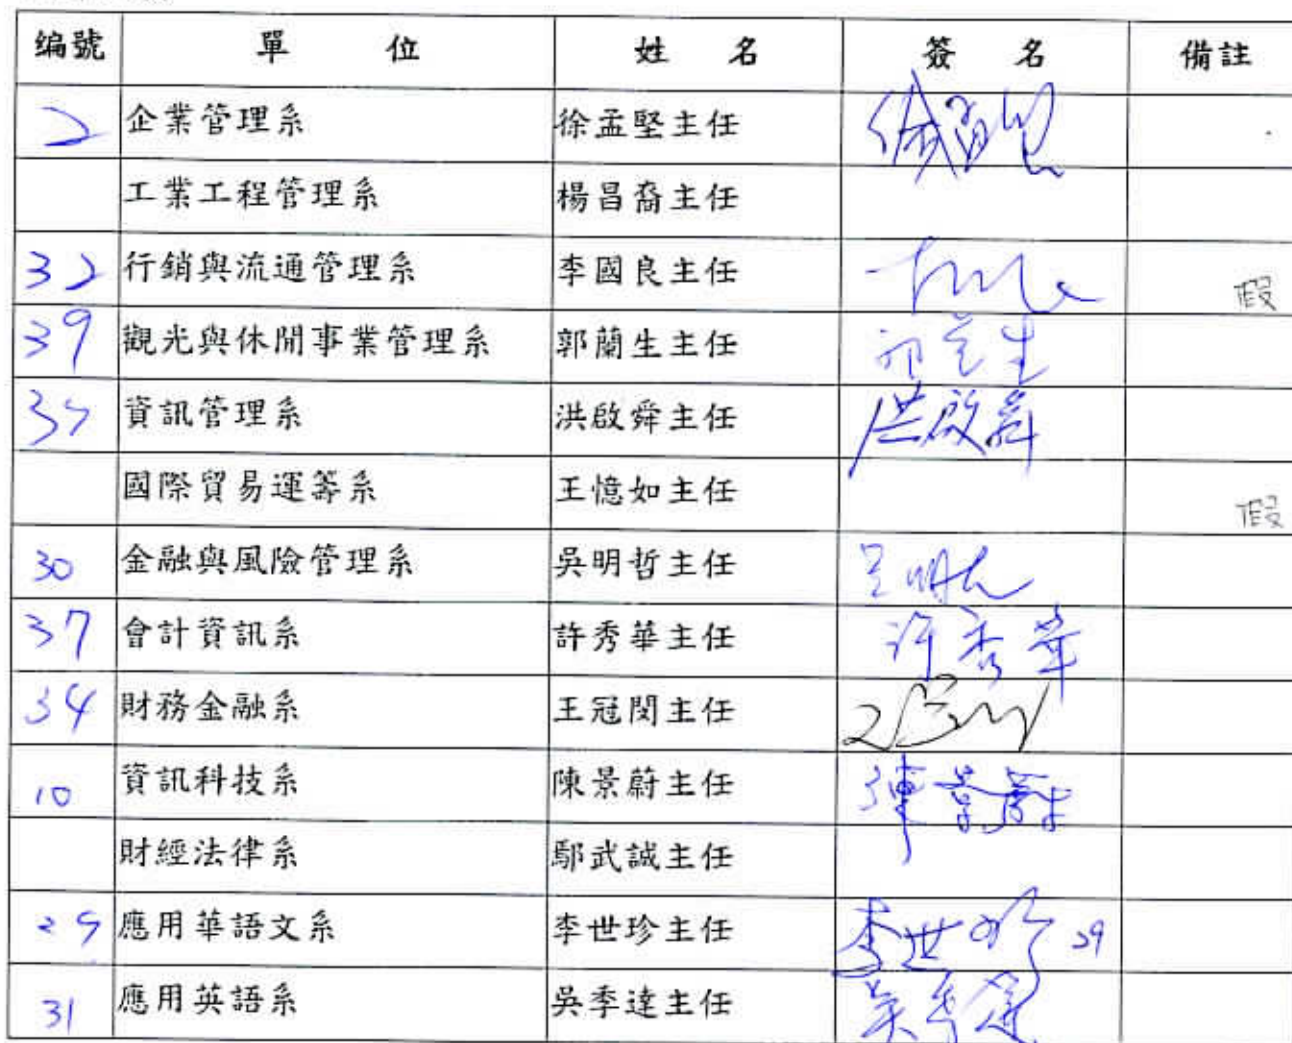 编號 單位 姓名 簽名 備註
2 企業管理系 徐孟堅主任 徐孟堅
工業工程管理系 楊昌裔主任
32 行銷與流通管理系 李國良主任 假
39 觀光與休閒事業管理系 郭蘭生主任 郭兰生
35 資訊管理系 洪啟舜主任 洪啟舜
國際貿易運籌系 王憶如主任 假
30 金融與風險管理系 吳明哲主任 吳明哲
37 會計資訊系 許秀華主任 許秀華
34 財務金融系 王冠閔主任
10 資訊科技系 陳景蔚主任 陳景蔚
財經法律系 鄢武誠主任
29 應用華語文系 李世珍主任 李世珍 29
31 應用英語系 吳季達主任 吳季達